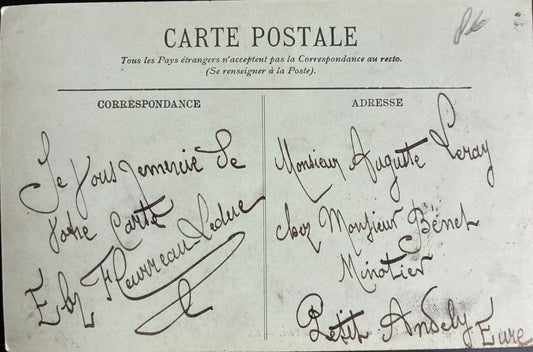 CARTE POSTALE
Tous les Pays étrangers n'acceptent pas la Correspondance au recto.
(Se renseigner à la Poste).
CORRESPONDANCE
Je vous remercie de
votre Carte
Fleurreau Leduc
ADRESSE
Monsieur Auguste Leray
chez Monsieur Benet
Minotier
Petit Andely Eure